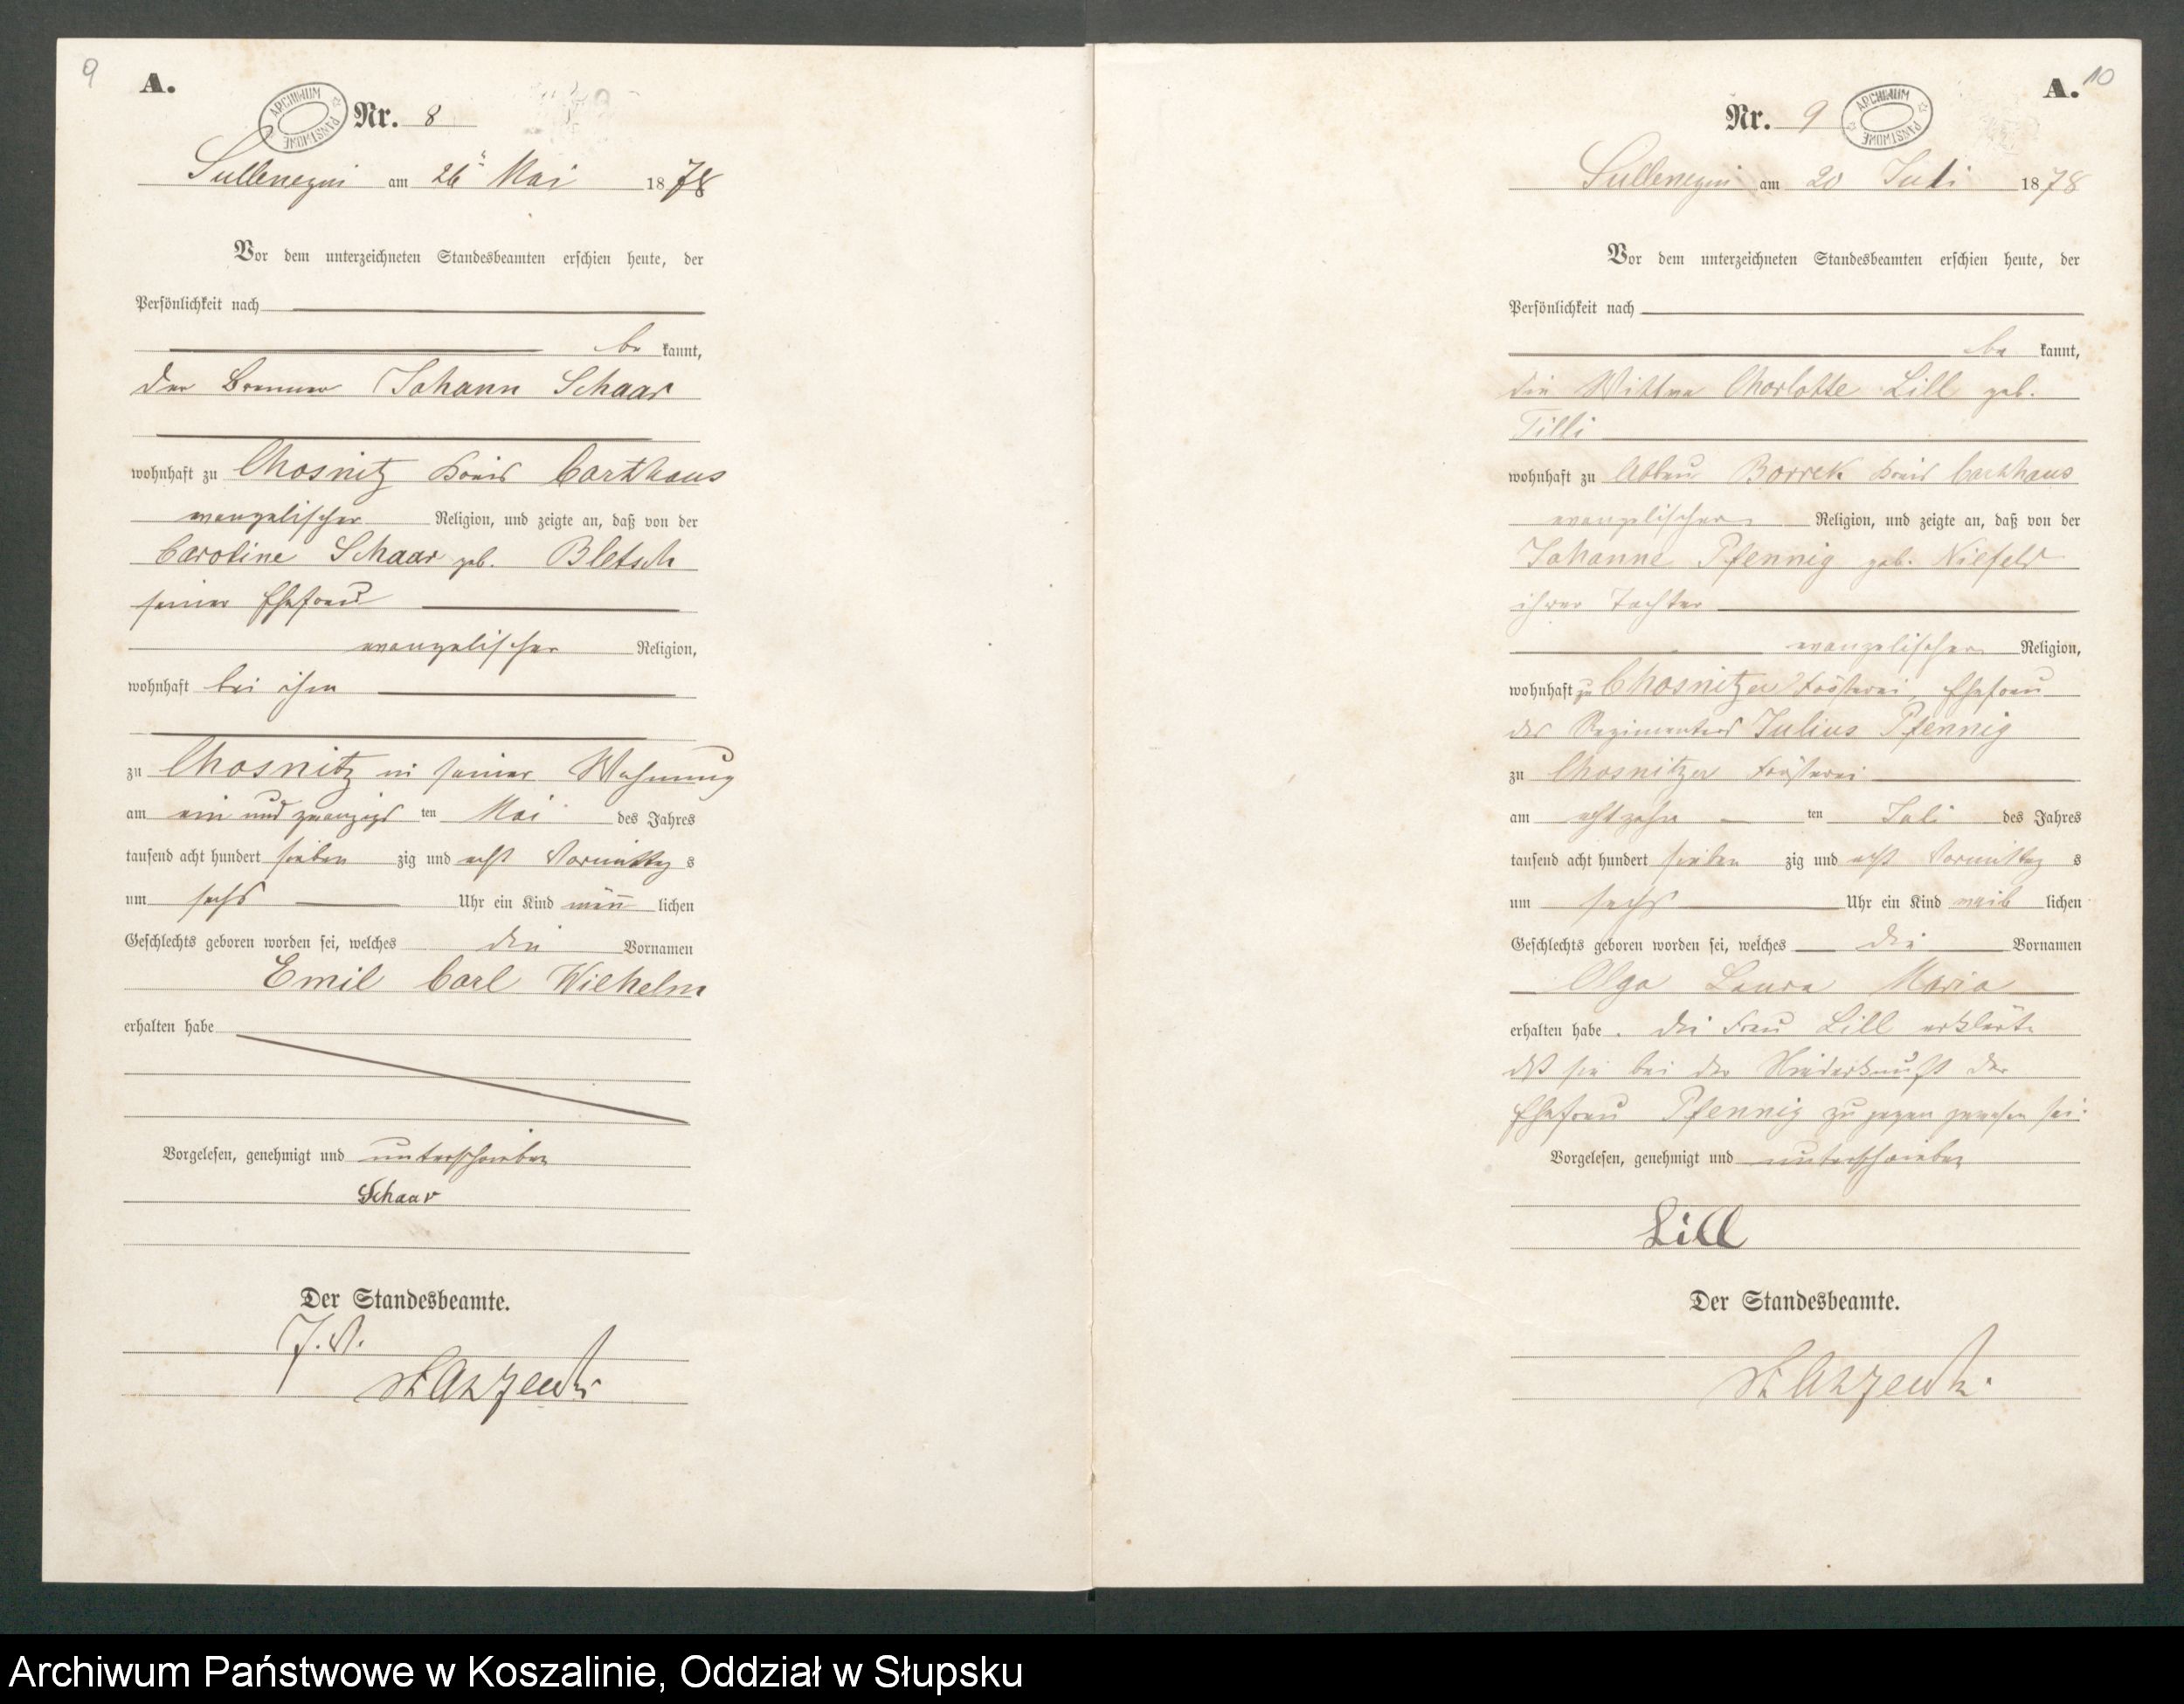 9
A.
ARCHIWUM PAŃSTWOWE
Nr. 8
Sullenczin am 26 Mai 1878
Vor dem unterzeichneten Standesbeamten erschien heute, der
Persönlichkeit nach
be kannt,
der Brenner Johann Schaar
wohnhaft zu Chosnitz Kreis Carthaus
evangelischer Religion, und zeigte an, daß von der
Caroline Schaar geb. Bletsch
seiner Ehefrau
evangelischer Religion,
wohnhaft bei ihm
zu Chosnitz in seiner Wohnung
am ein und zwanzigs ten Mai des Jahres
tausend acht hundert sieben zig und acht Vormittag s
um sechs Uhr ein Kind männ lichen
Geschlechts geboren worden sei, welches die Vornamen
Emil Carl Wilhelm
erhalten habe
Vorgelesen, genehmigt und unterschrieben
Schaar
Der Standesbeamte.
J. V.
A. 10
Nr. 9
ARCHIWUM PAŃSTWOWE
Sullenczin am 20 Juli 1878
Vor dem unterzeichneten Standesbeamten erschien heute, der
Persönlichkeit nach
be kannt,
die Wittwe Charlotte Lill geb.
Tilli
wohnhaft zu Abbau Borrek Kreis Carthaus
evangelischer Religion, und zeigte an, daß von der
Johanne Pfennig geb. Niefeld
ihrer Tochter
evangelischer Religion,
wohnhaft zu Chosnitzer Försterei, Ehefrau
des Julius Pfennig
zu Chosnitzer Försterei
am achtzehn ten Juli des Jahres
tausend acht hundert sieben zig und acht Vormittag s
um sechs Uhr ein Kind weib lichen
Geschlechts geboren worden sei, welches die Vornamen
Olga Laura Maria
erhalten habe. Die Frau Lill erklärte
daß sie bei der Niederkunft der
Ehefrau Pfennig zugegen gewesen sei.
Vorgelesen, genehmigt und unterschrieben
Lill
Der Standesbeamte.
Archiwum Państwowe w Koszalinie, Oddział w Słupsku